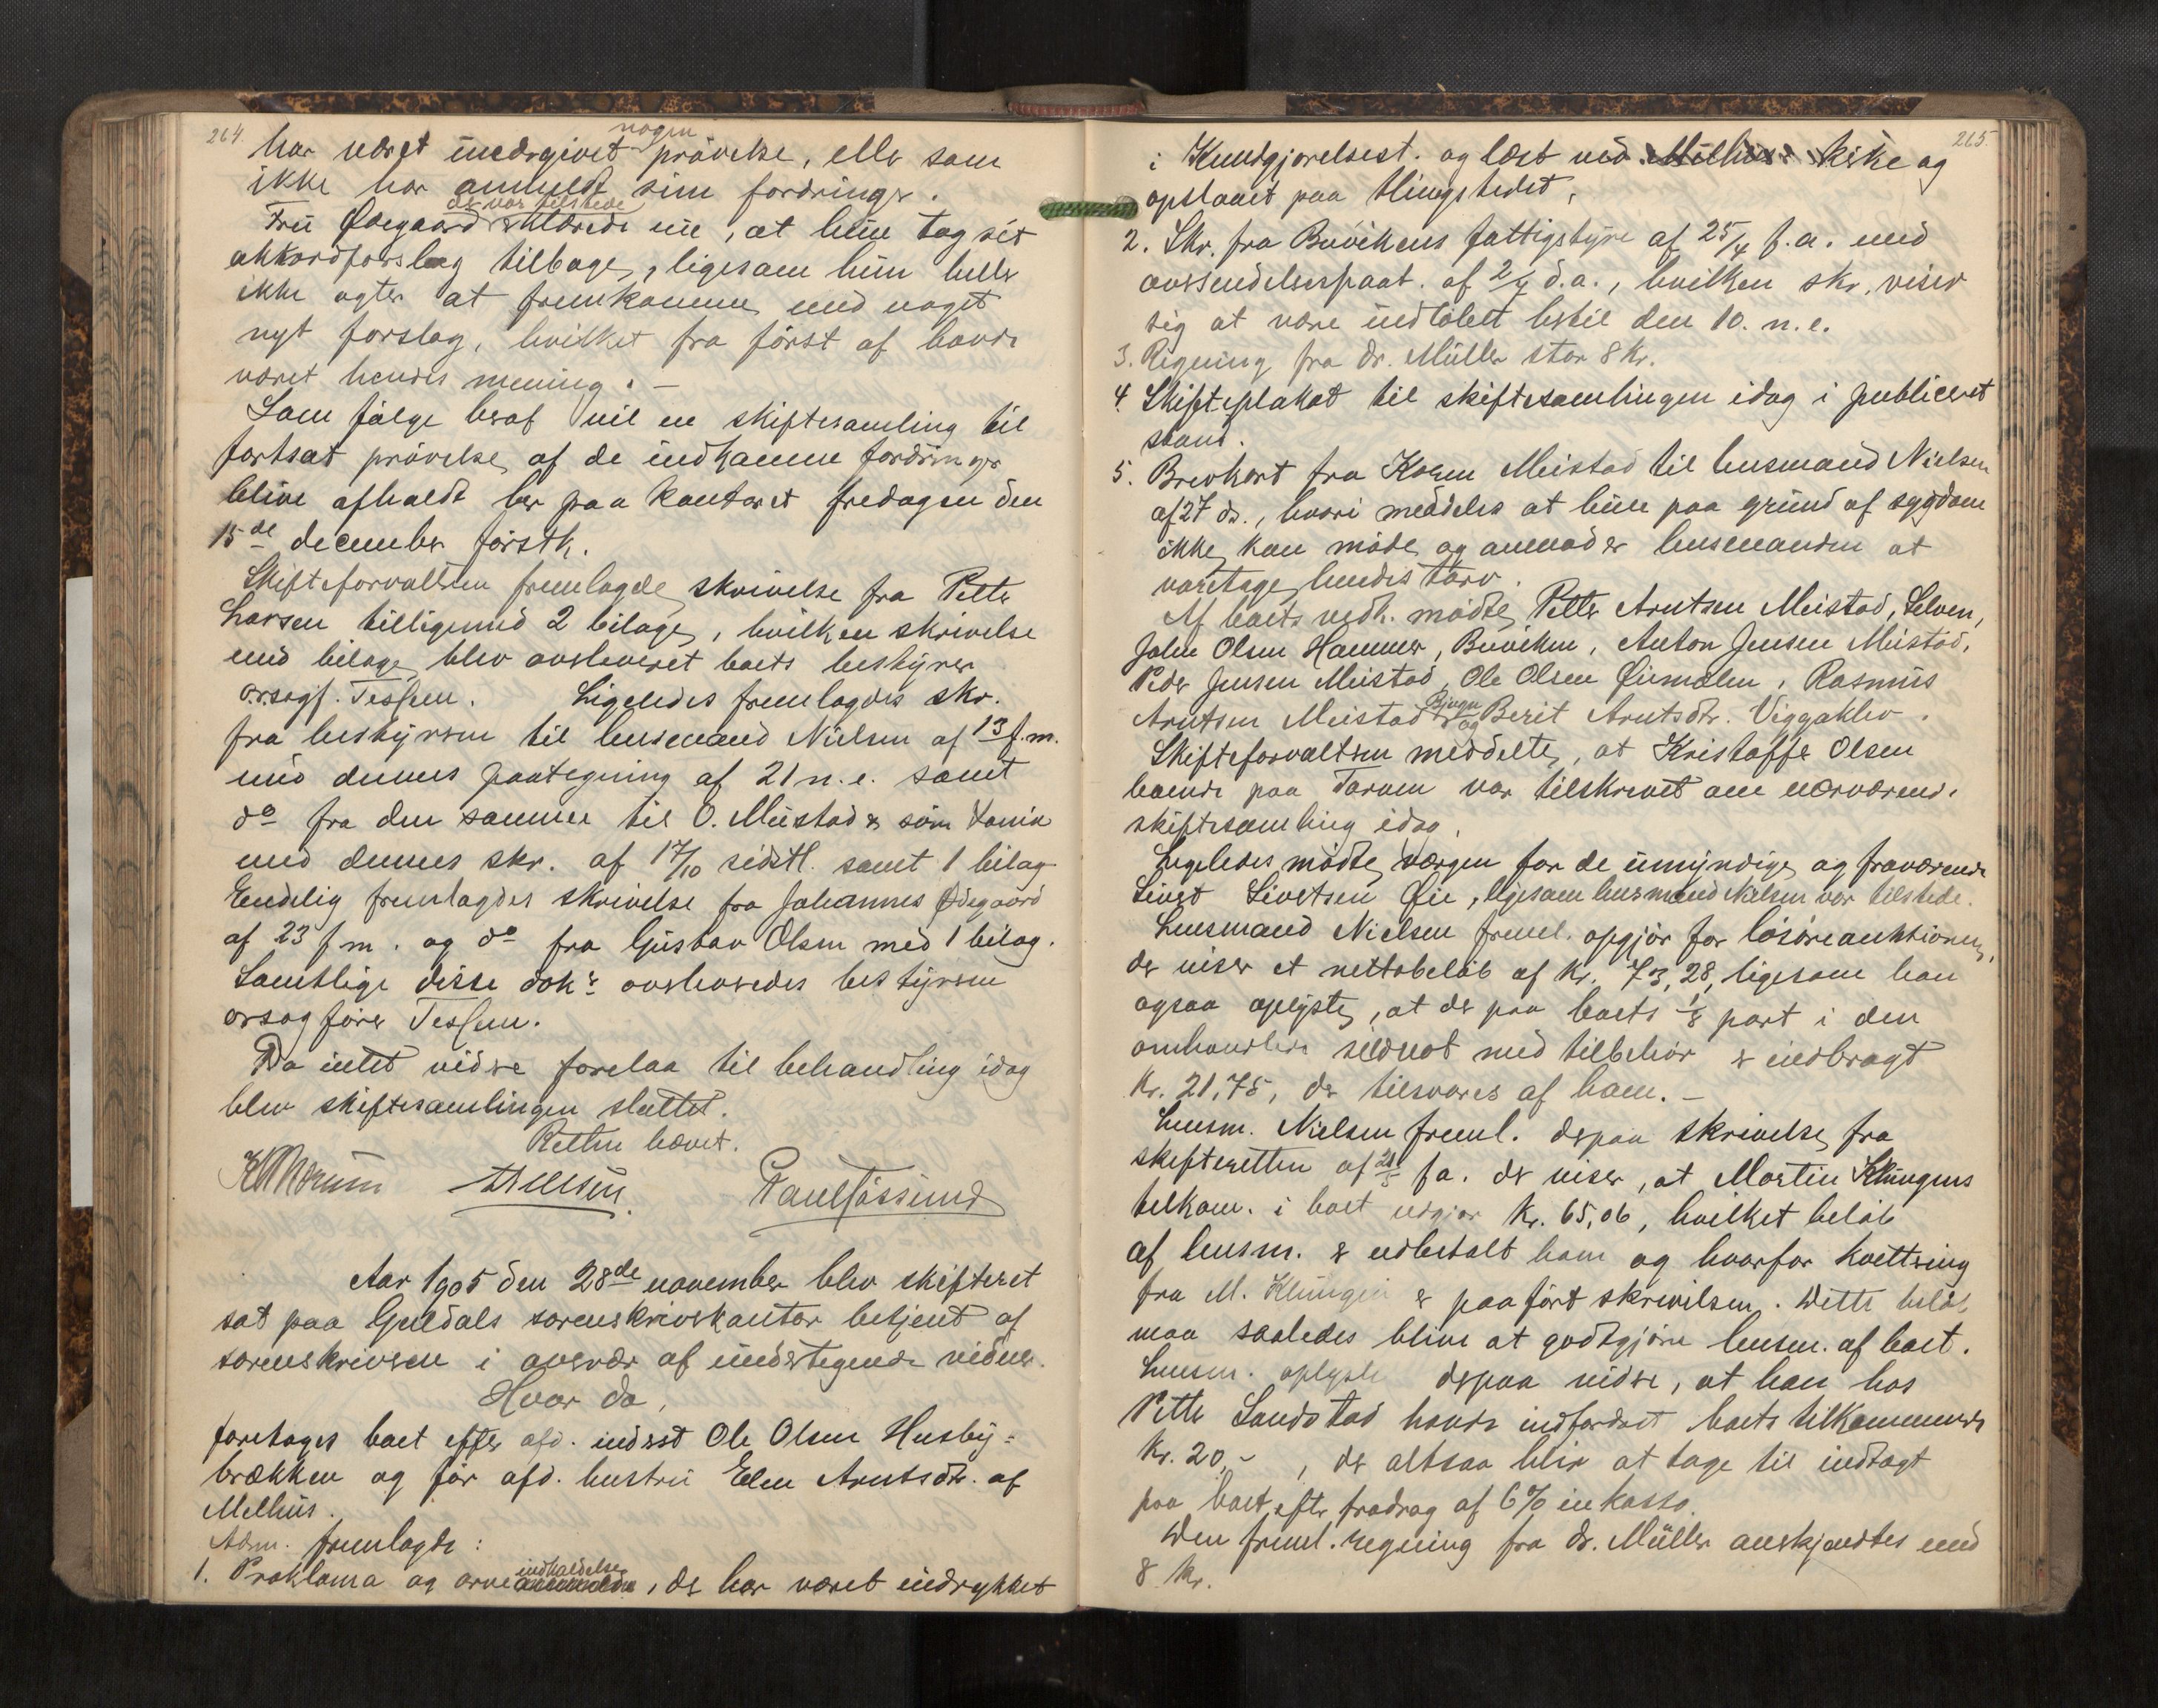 264
nogen
har været undergivet prøvelse, eller som
ikke har anmeldt sine fordringer.
der var tilstede
Fru Ødegaard erklærede nu, at hun tog sit
akkordforslag tilbage, ligesom hun heller
ikke agter at fremkomme med noget
nyt forslag, hvilket fra først af havde
været hendes mening. –
Som følge heraf vil en skiftesamling til
fortsat prøvelse af de indkomne fordringer
blive afholdt her paa kontoret fredagen den
15de december førstk.
Skifteforvalteren fremlagde skrivelse fra Petter
Larsen tilligemed 2 bilage, hvilken skrivelse
med bilage blev overleveret boets bestyrer
o.r.sagf. Tessem. Ligeledes fremlagdes skr.
fra bestyreren til lensmand Nielsen af 13 f.m.
med dennes paategning af 21 n.e. samt
do fra den samme til O. Meistad &
med dennes skr. af 17/10 sidstl. samt 1 bilag
Endelig fremlagdes skrivelse fra Johannes Ødegaard
af 23 f.m. og do fra Gustav Olsen med 1 bilag.
Samtlige disse dokr overleveredes bestyreren
orsagfører Tessem.
Da intet videre forelaa til behandling idag
blev skiftesamlingen sluttet.
Retten hævet.
Paul Fossund
Aar 1905 den 28de november blev skifteret
sat paa Guldals sorenskriverkontor betjent af
sorenskriveren i overvær af undertegnede vidner.
Hvor da,
foretoges boet efter afd. inderst Ole Olsen Husby-
brækken og før afd. hustru Elen Arntsdtr. af
Melhus.
Adm. fremlagde:
indkaldelse
1. Proklama og arve , der har været indrykket
265.
i Kundgjørelsest. og læst ved Melhus kirke og
opslaaet paa thingstedet,
2. Skr. fra Buvikens fattigstyre af 25/4 f.a. med
oversendelsespaat. af 2/4 d.a., hvilken skr. viser
sig at være indløbet hertil den 10. n.e.
3. Regning fra dr. Müller stor 8 kr.
4. Skifteplakat til skiftesamlingen idag i publiceret
stand.
5. Brevkort fra Karen Meistad til lensmand Nielsen
af 27 ds., hvori meddeles at hun paa grund af sygdom
ikke kan møde og anmoder lensmanden at
varetage hendes tarv.
Af boets vedk. mødte Petter Arntsen Meistad, Selven,
John Olsen Hammer, Buviken, Anton Jensen Meistad,
Peder Jensen Meistad, Ole Olsen Øiemolen, Rasmus
Bjugn
Arntsen Meistad og Berit Arntsdtr. Viggaklev.
Skifteforvalteren meddelte, at Kristoffer Olsen
boende paa Tarven var tilskrevet om nærværende
skiftesamling idag.
Ligeledes mødte værgen for de umyndige og fraværende
Sivert Sivertsen Øie, ligesom lensmand Nielsen var tilstede.
Lensmand Nielsen freml. opgjør for løsøreauktionen,
der viser et nettobeløb af kr. 73,28, ligesom han
ogsaa oplyste, at der paa boets 1/8 part i den
omhandlede sildnot med tilbehør er indbragt
kr. 21,75, der tilsvares af ham. –
Lensm. Nielsen freml. derpaa skrivelse fra
skifteretten af 21/5 f.a. der viser, at Martin Klungens
tilkom. i boet udgjør kr. 65,06, hvilket beløb
af lensm. er udbetalt ham og hvorfor kvittering
fra M. Klungen er paaført skrivelsen. Dette beløb
maa saaledes blive at godtgjøre lensm. af boet.
Lensm. oplyste derpaa videre, at han hos
Petter Sandstad havde indfordret boets tilkommende
kr. 20,–, der altsaa blir at tage til indtægt
paa boet efter fradrag af 6% inkasso.
Den freml. regning fra dr. Müller anerkjendtes med
8 kr.